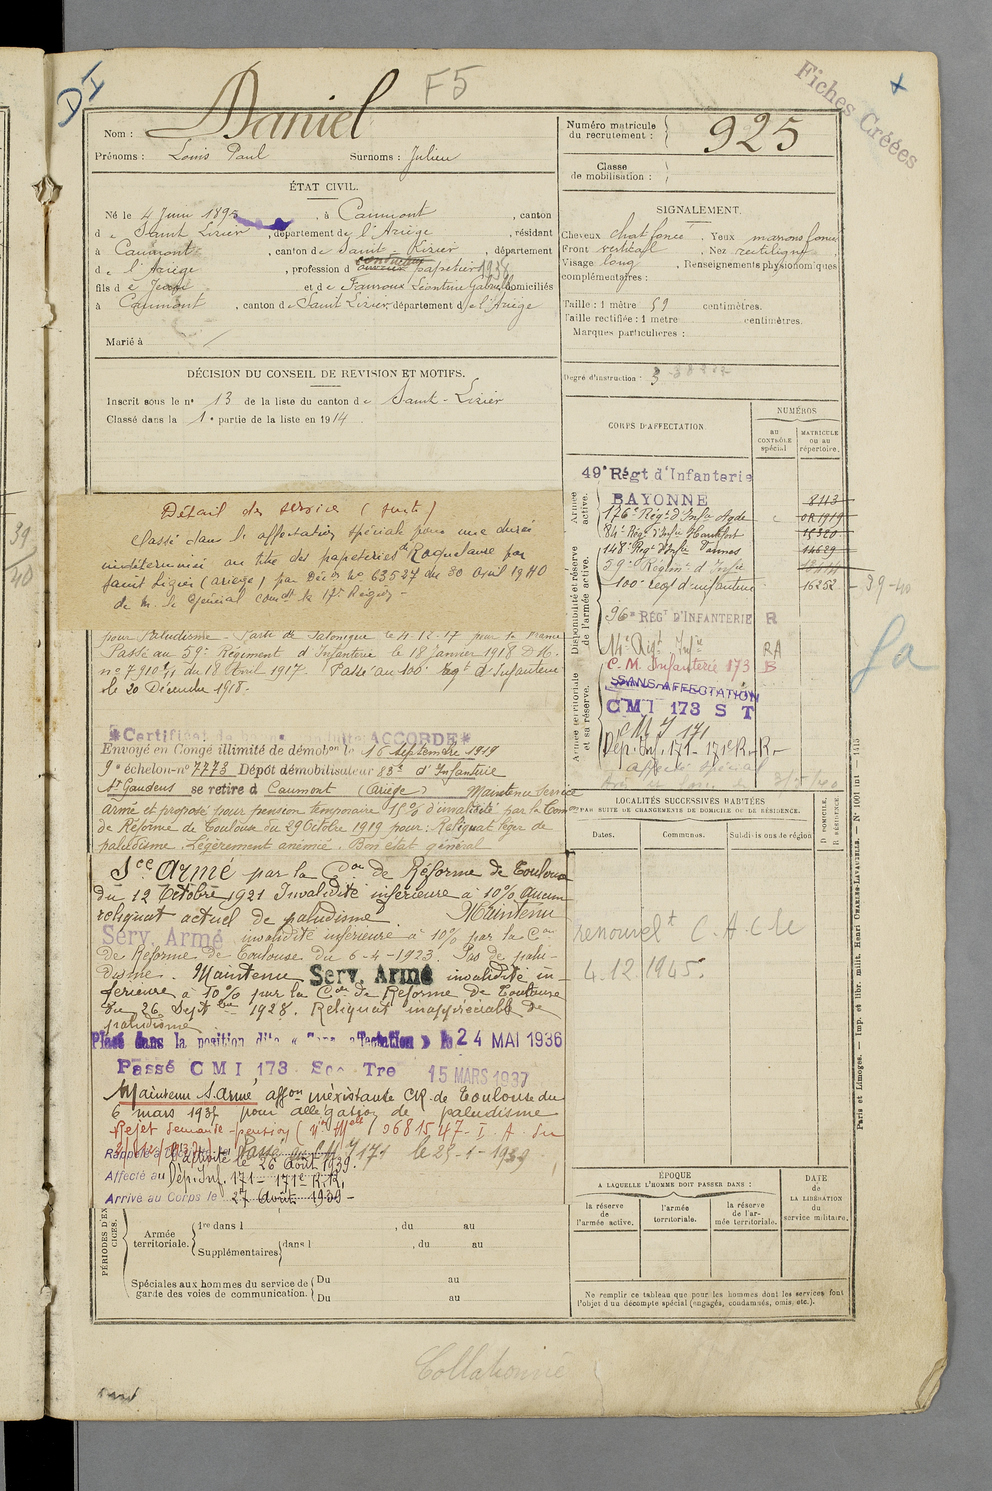 D I
F5
Fiches Créées
Nom : Daniel
Prénoms : Louis Paul Surnoms : Julien
Numéro matricule du recrutement : 925
Classe de mobilisation :
ÉTAT CIVIL.
Né le 4 Juin 189 , à Caumont , canton
de Saint Lizier , département de l'Ariège , résident
à Caumont , canton de Saint-Lizier , département
de l'Ariège , profession de papetier
fils de Jean et de Fauroux Léontine domiciliés
à Caumont , canton de Saint Lizier, département de l'Ariège
Marié à
SIGNALEMENT.
Cheveux chat foncé . Yeux marrons foncé
Front vertical . Nez rectiligne
Visage long . Renseignements physionomiques
complémentaires :
Taille : 1 mètre 59 centimètres.
Taille rectifiée : 1 mètre centimètres.
Marques particulières :
Degré d'instruction : 3
DÉCISION DU CONSEIL DE REVISION ET MOTIFS.
Inscrit sous le n° 13 de la liste du canton de Saint-Lizier
Classé dans la 1e partie de la liste en 1914
Détail des service (suite)
Classé dans l'affectation spéciale pour une durée
indéterminée au titre des papeteries Roquelaure par
Saint Lizier (Ariège) par Décon N° 63527 du 30 Avril 1940
de M. le Général comdt la 17e Région -
pour Paludisme. Parti de Salonique le 4.12.17 pour la France
Passé au 59e Régiment d'Infanterie le 18 Janvier 1918 D.M.
n° 7910 1/1 du 18 Avril 1917. Passé au 100e Régt d'Infanterie
le 20 Décembre 1918.
*Certificat de bonne conduite ACCORDÉ*
Envoyé en Congé illimité de démobon le 16 Septembre 1919
9e échelon-n° 7773 Dépôt démobilisateur 83e d'Infanterie
St Gaudens se retire à Caumont (Ariège) Maintenu Service
armé et proposé pour pension temporaire 15% d'invalidité par la Com
de Réforme de Toulouse du 29 Octobre 1919 pour : Reliquat léger de
paludisme. Légèrement anémié. Bon état général
Sce Armé par la Con de Réforme de Toulouse
du 12 Octobre 1921 Invalidité inférieure à 10% Aucun
reliquat actuel de paludisme Maintenu
Serv Armé invalidité inférieure à 10% par la Con
de Réforme de Toulouse du 6-4-1923. Pas de palu-
disme. Maintenu Serv. Armé invalidité in-
férieure à 10% par la Con de Réforme de Toulouse
du 26 Septbre 1928. Reliquat inappréciable de
paludisme
Placé dans la position dite « Sans affectation » le 24 MAI 1936
Passé CMI 173 Son Tre 15 MARS 1937
Maintenu S. armé affon inexistante CR de Toulouse du
6 mars 193 pour allégation de paludisme
Rejet demande-pension
Passé au CMI 171 le 25-1-1939
Rappelé à l'activité le 26 Août 1939.
Affecté au Dép. Inf. 171 - 171e R.R.
Arrivé au Corps le 27 Août 1939 -
CORPS D'AFFECTATION.
NUMÉROS
AU CONTRÔLE spécial
MATRICULE ou au répertoire.
Armée active.
Disponibilité et réserve de l'armée active.
Armée territoriale et sa réserve.
49e Régt d'Infanterie
BAYONNE 8113
176e Régt d'Infie
84e Régt d'Infie 15320
148e Régt d'Infie Vannes 14629
59e Régimt d'Infie
100e Régt d'infanterie 16252 - 39-40
96e RÉGT D'INFANTERIE R
14e Régt Infie RA
C.M. Infanterie 173 B
SANS AFFECTATION
CMI 173 S T
C M I 171
Dép. Inf. 171 - 171e R.R.
Affecté spécial
LOCALITÉS SUCCESSIVES HABITÉES
PAR SUITE DE CHANGEMENTS DE DOMICILE OU DE RÉSIDENCE.
Dates. Communes. Subdivisions de région
D. DOMICILE, R. RÉSIDENCE
renouvelt C.A.C. le
4.12.1945.
PÉRIODES D'EXERCICES.
Armée territoriale. 1re dans l , du au
Supplémentaires dans l , du au
Spéciales aux hommes du service de garde des voies de communication. Du au
Du au
ÉPOQUE
A LAQUELLE L'HOMME DOIT PASSER DANS :
la réserve de l'armée active.
l'armée territoriale.
la réserve de l'armée territoriale.
DATE de LA LIBÉRATION du service militaire.
Ne remplir ce tableau que pour les hommes dont les services font
l'objet d'un décompte spécial (engagés, condamnés, omis, etc.).
Paris et Limoges. — Imp. et libr. milit. Henri CHARLES-LAVAUZELLE. — N° 1001 int — 1415
Collationné
39
40